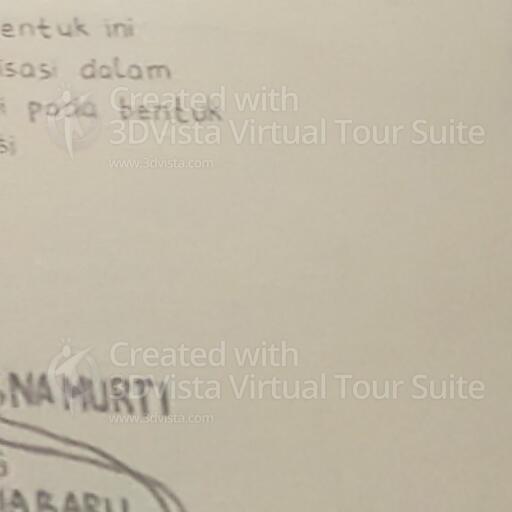 entuk ini
isasi dalam
i pada bentuk
si
Created with
3DVista Virtual Tour Suite
www.3dvista.com
Created with
NA MURTY
3DVista Virtual Tour Suite
www.3dvista.com